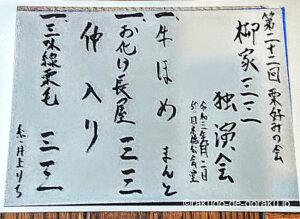 第二十二回 栗好みの会
柳家三三 独演会
令和三年六月二日
於 日本橋公会堂
一 牛ほめ まんと
一 お化け長屋 三三
仲入り
一 三味線栗毛 三三
©rakugo-de-go-raku.jp